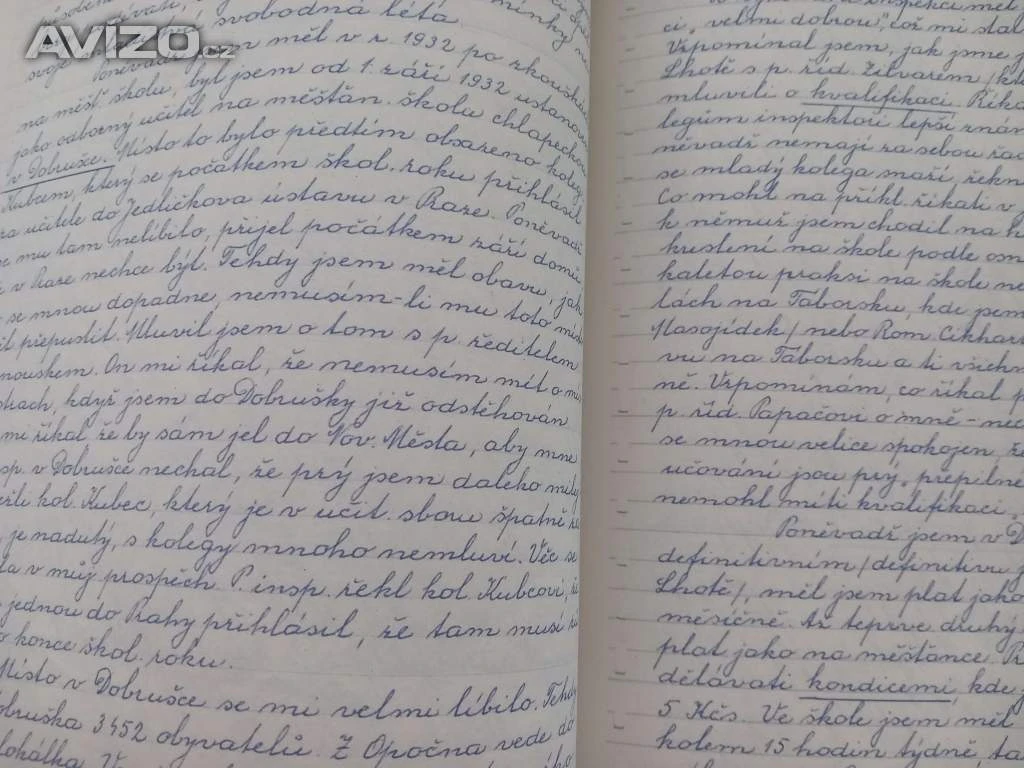 AVIZO.cz
svobodná léta.
svoje
Poněvadž jsem měl v r. 1932 po zkoušká
na měšť. školu, byl jsem od 1. září 1932 ustanove
jako odborný učitel na měšťan. školu chlapeckou
v Dobrušce. Místo to bylo předtím obsazeno kolego
Kubcem, který se počátkem škol. roku přihlásil
za učitele do Jedličkova ústavu v Praze. Poněvadž
se mu tam nelíbilo, přijel počátkem září domů,
v Praze nechce být. Tehdy jsem měl obavu, jak
se mnou dopadne, nemusím-li mu toto místo
přepustit. Mluvil jsem o tom s p. ředitelem
On mi říkal, že nemusím mít o mís
když jsem do Dobrušky již odstěhován
mi říkal že by sám jel do Nov. Města, aby mne
sp. v Dobrušce nechal, že prý jsem daleko milý
kol. Kubec, který je v učit. sboru špatně
je nadutý, s kolegy mnoho nemluví. Věc se
v můj prospěch. P. insp. řekl kol. Kubcovi, že
jednou do Prahy přihlásil, že tam musí
konce škol. roku.
Místo v Dobrušce se mi velmi líbilo. Tehdy
Dobruška 3452 obyvatelů. Z Opočna vede do
lokálka. V
inspekci měl
ci „velmi dobrou", což mi stal
Vzpomínal jsem, jak jsme j
Lhotě s p. říd. Žilvarem /kd
mluvili o kvalifikaci. Říka
legům inspektoři lepší znám
něvadž nemají za sebou řad
se mladý kolega snaží, řekn
Co mohl na příkl. říkati v
k němuž jsem chodil na h
kuslení na škole podle osn
kaletou praksi na škole ne
lách na Táborsku, kde jsem
Masojídek/ nebo Rom. Cikhar
vu na Táborsku a ti všichn
ně. Vzpomínám, co říkal p
p. říd. Papačovi o mně - ne
se mnou velice spokojen, že
učování jsou prý „přepilně
nemohl míti kvalifikaci „
Poněvadž jsem v D
definitivním /definitivu j
Lhotě/, měl jsem plat jako
měsíčně. Až teprve druhý
plat jako na měšťance. Př
dělávati kondicemi, kde
5 Kčs. Ve škole jsem měl
kolem 15 hodin týdně, ta